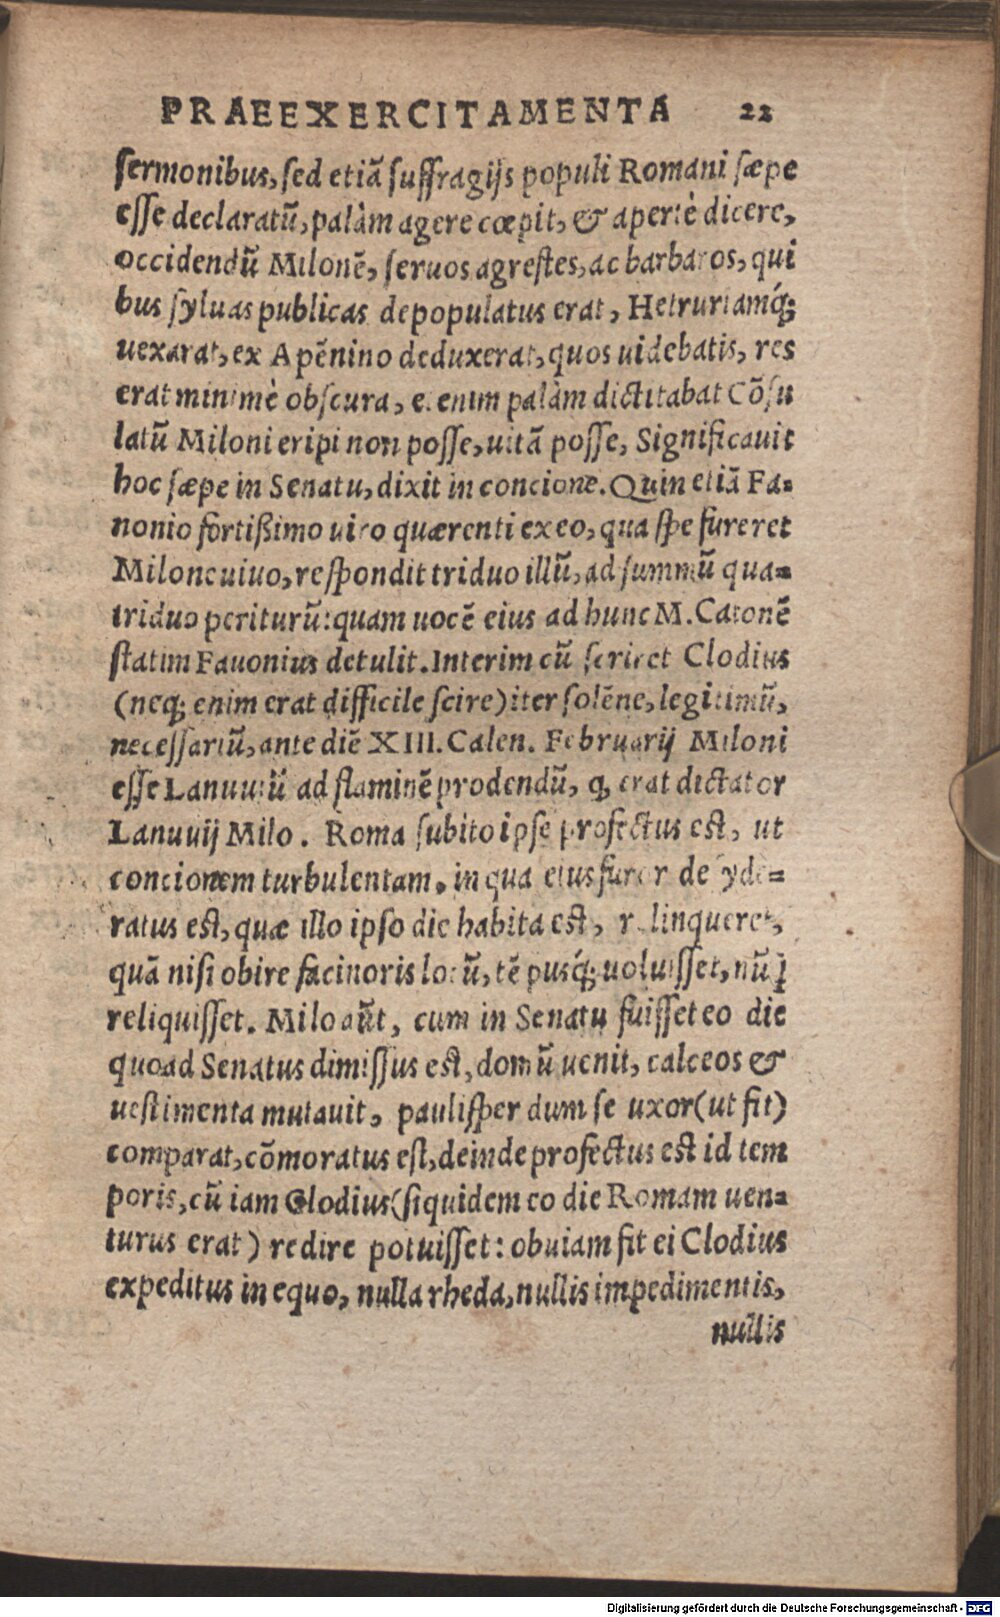 PRAEEXERCITAMENTA 22
sermonibus, sed etiã suffragijs populi Romani sæpe
esse declaratũ, palàm agere cœpit, & apertè dicere,
occidendũ Milonẽ, seruos agrestes, ac barbaros, qui
bus syluas publicas depopulatus erat, Hetruriamq́;
uexarat, ex Apẽnino deduxerat, quos uidebatis, res
erat minimè obscura, etenim palàm dictitabat Cõsu
latũ Miloni eripi non posse, uitã posse, Significauit
hoc sæpe in Senatu, dixit in concione. Quin etiã Fa-
nonio fortißimo uiro quærenti ex eo, qua spe fureret
Milone uiuo, respondit triduo illũ, ad summũ qua-
triduo periturũ: quam uocẽ eius ad hunc M. Catonẽ
statim Fauonius detulit. Interim cũ sciret Clodius
(neq; enim erat difficile scire) iter solẽne, legitimũ,
necessariũ, ante diẽ XIII. Calen. Februarij Miloni
esse Lanuuiũ ad flaminẽ prodendũ, q, erat dictator
Lanuuij Milo. Roma subito ipse profectus est, ut
concionem turbulentam, in qua eius furor desyde-
ratus est, quæ illo ipso die habita est, relinqueret,
quã nisi obire facinoris locũ, tẽpusq́; uoluisset, nũꝗ̃
reliquisset. Milo aũt, cum in Senatu fuisset eo die
quoad Senatus dimissus est, domũ uenit, calceos &
uestimenta mutauit, paulisper dum se uxor (ut fit)
comparat, cõmoratus est, deinde profectus est id tem
poris, cũ iam Clodius (siquidem eo die Romam uen-
turus erat) redire potuisset: obuiam fit ei Clodius
expeditus in equo, nulla rheda, nullis impedimentis,
nullis
Digitalisierung gefördert durch die Deutsche Forschungsgemeinschaft - DFG